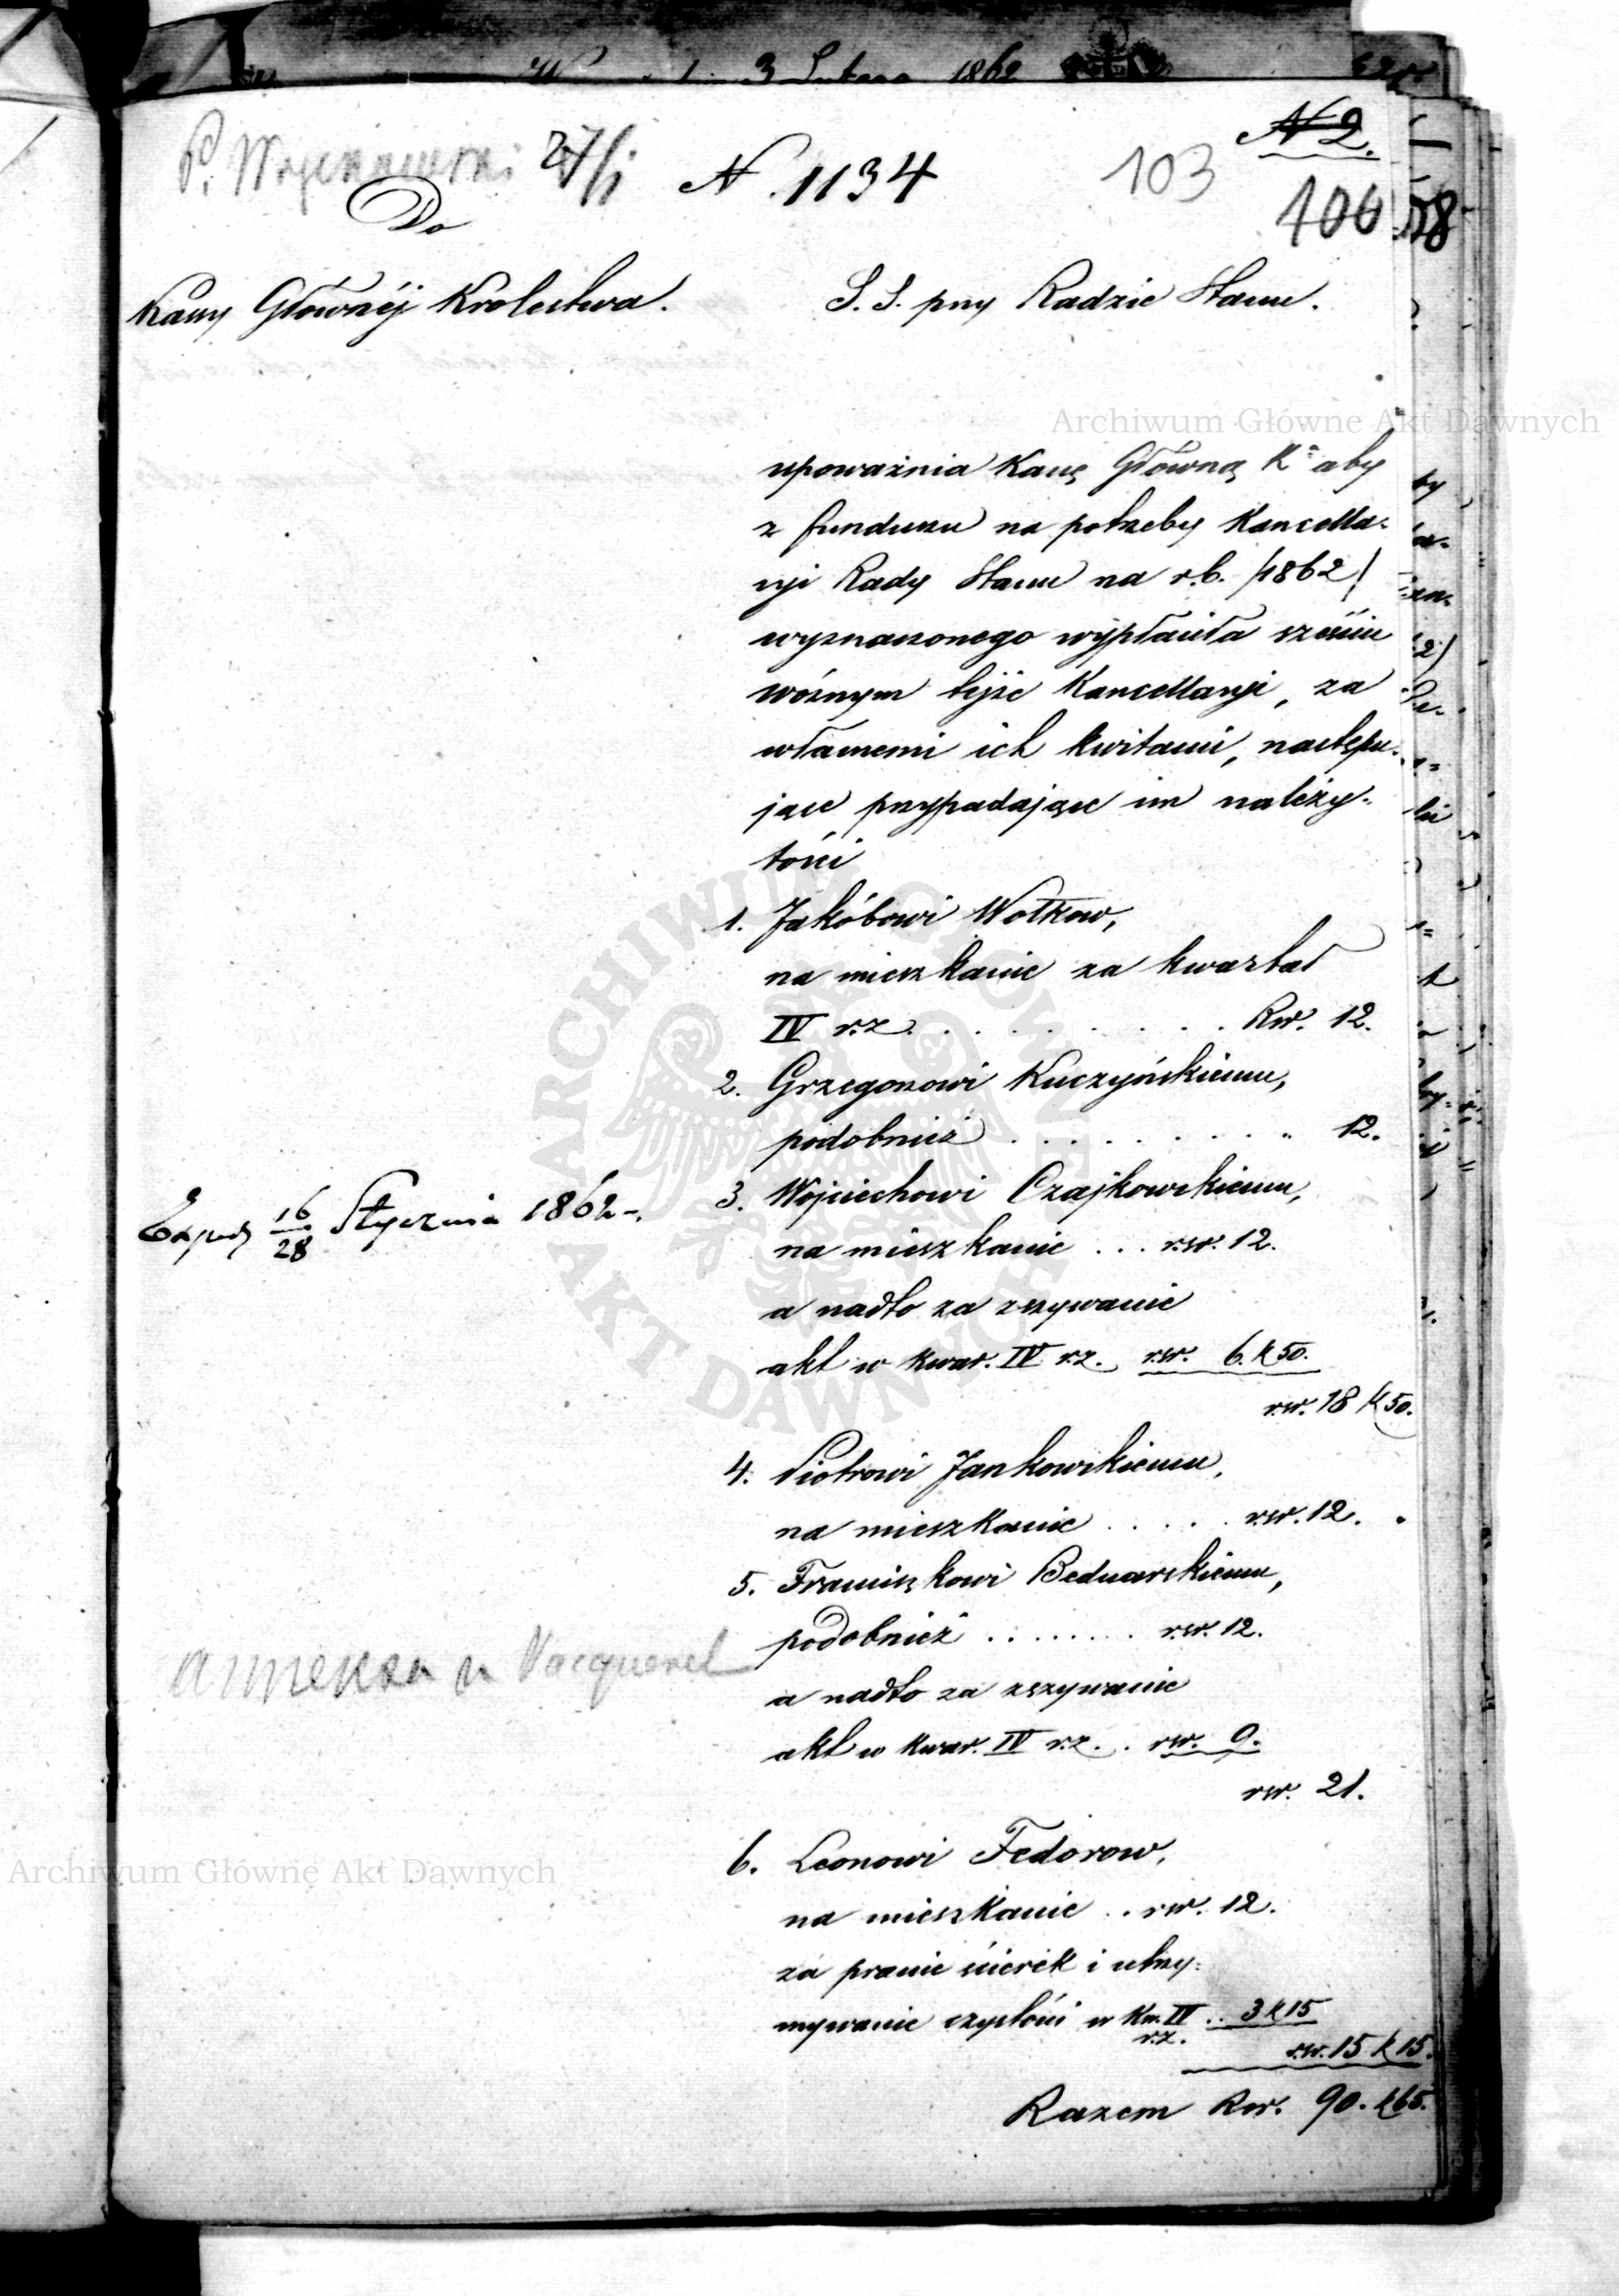 3 Lutego 1862
N 2.
27/1 N. 1134
103
106 58
Do
Kassy Głównéj Królestwa.
S. S. przy Radzie Stanu.
Archiwum Główne Akt Dawnych
upoważnia Kassę Główną K. aby
z funduszu na potrzeby Kancella-
ryi Rady Stanu na r.b. /1862/
wyznaczonego wypłaciła sześciu
woźnym tejże Kancellaryi, za
własnemi ich kwitami, następu-
jące przypadające im należy-
tości
1. Jakóbowi Wołkow,
na mieszkanie za kwartał
IV r.z. . . . . . . . . . Rsr. 12.
2. Grzegorzowi Kuczyńskiemu,
podobnież . . . . . . . . . " 12.
3. Wojciechowi Czajkowskiemu,
na mieszkanie . . . rsr. 12.
a nadto za zszywanie
akt w kwar. IV r.z. rsr. 6. k 50.
rsr. 18 k 50.
Exped 16/28 Stycznia 1862.
4. Piotrowi Jankowskiemu,
na mieszkanie . . . . . rsr. 12.
5. Franciszkowi Bednarskiemu,
podobnież . . . . . . . rsr. 12.
a nadto za zszywanie
akt w kwar. IV r.z. . rsr. 9.
rsr. 21.
annexa u Vacqueret
6. Leonowi Fedorow,
na mieszkanie . . rsr. 12.
za pranie ścierek i utrzy-
mywanie czystości w Kw. IV . . 3 k 15
r.z.
rsr. 15 k 15.
Razem Rsr. 90. k 65.
Archiwum Główne Akt Dawnych
ARCHIWUM GŁÓWNE AKT DAWNYCH